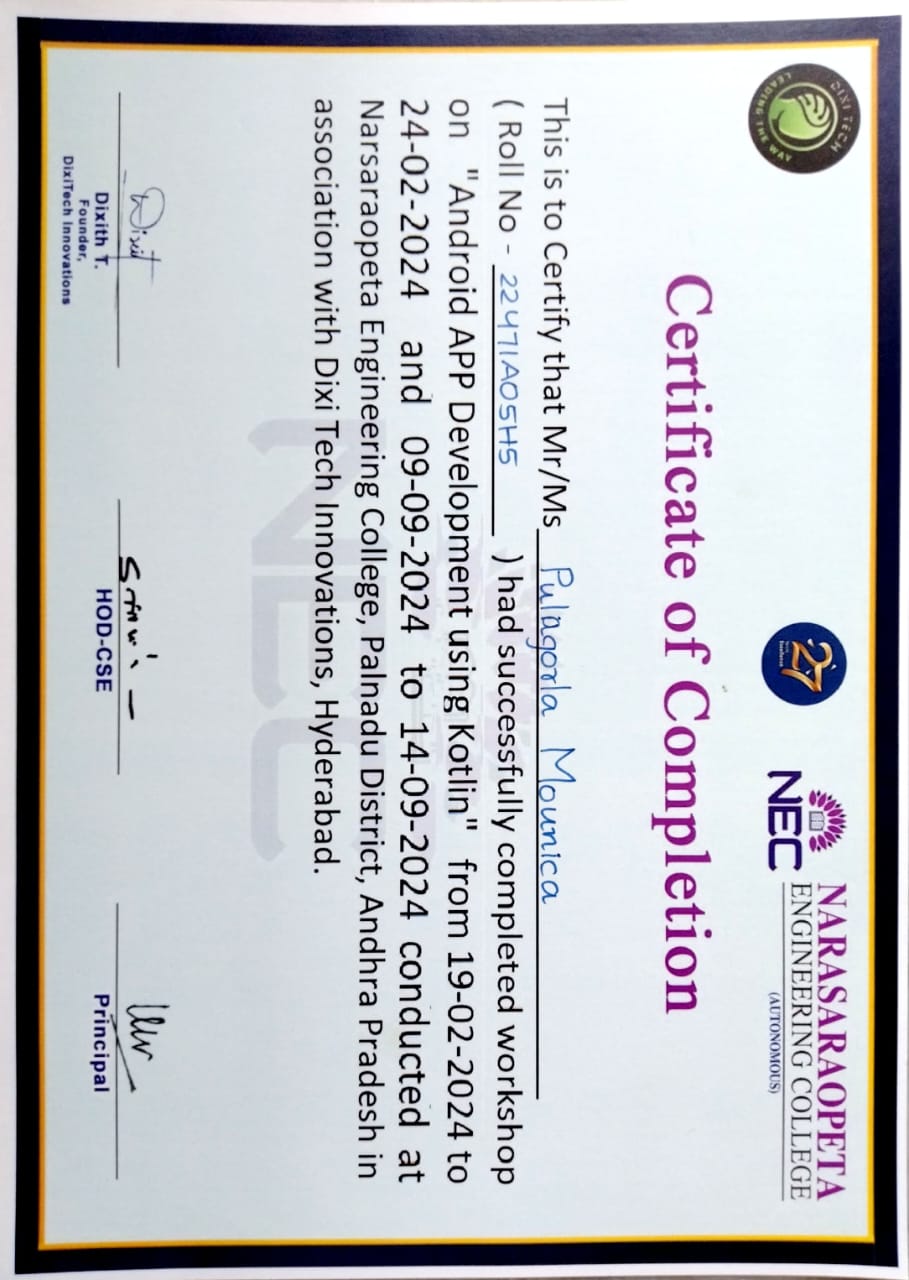 DIXI TECH
LEADING THE WAY
27
Excellence
NEC
NARASARAOPETA
ENGINEERING COLLEGE
(AUTONOMOUS)
Certificate of Completion
This is to Certify that Mr/Ms Pulagorla Mounica
( Roll No - 22471A05H5 ) had successfully completed workshop
on "Android APP Development using Kotlin" from 19-02-2024 to
24-02-2024 and 09-09-2024 to 14-09-2024 conducted at
Narsaraopeta Engineering College, Palnadu District, Andhra Pradesh in
association with Dixi Tech Innovations, Hyderabad.
NEC
Dixit
Dixith T.
Founder,
DixiTech Innovations
HOD-CSE
Principal